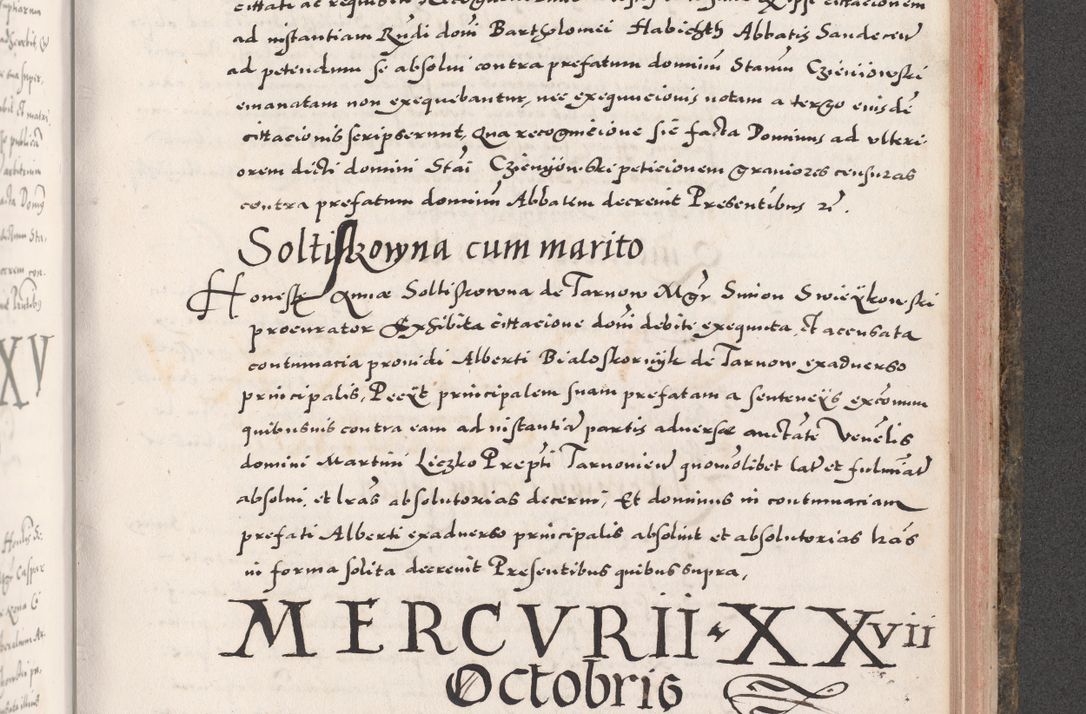 ad instantiam Rndi domi Bartholomei Habichth Abbatis Sandecen
ad petendum se absolui contra prefatum dominum Stanm Czeniowski
emanatam non exequebantur, nec exequucionis notam a tergo eiusdē
cittacionis scripserunt, Qua recognicione sic facta Dominus ad vlteri-
orem dicti domini Stai Czeniowski peticionem grauiores censuras
contra prefatum dominum Abbatem decreuit Presentibus rc.
Soltiskowna cum marito
Honeste Annæ Soltiskowna de Tarnow Mgr Simon Swieykowski
procurator Exhibita cittacione domi debite exequuta, et accusata
contumacia prouidi Alberti Bialoskornyk de Tarnow exaduerso
principalis, Peciit principalem suam prefatam a sentenciis excomm
quibusuis contra eam ad instantia partis aduersæ auctate Venelis
domini Martini Liczko Prepti Tarnonien quomolibet lat et fulminat
absolui, et lras absolutorias decerni, Et dominus in contumaciam
prefati Alberti exaduerso principalis absoluit et absolutorias lras
in forma solita decreuit Presentibus quibus supra,
MERCVRII XXvii
Octobris